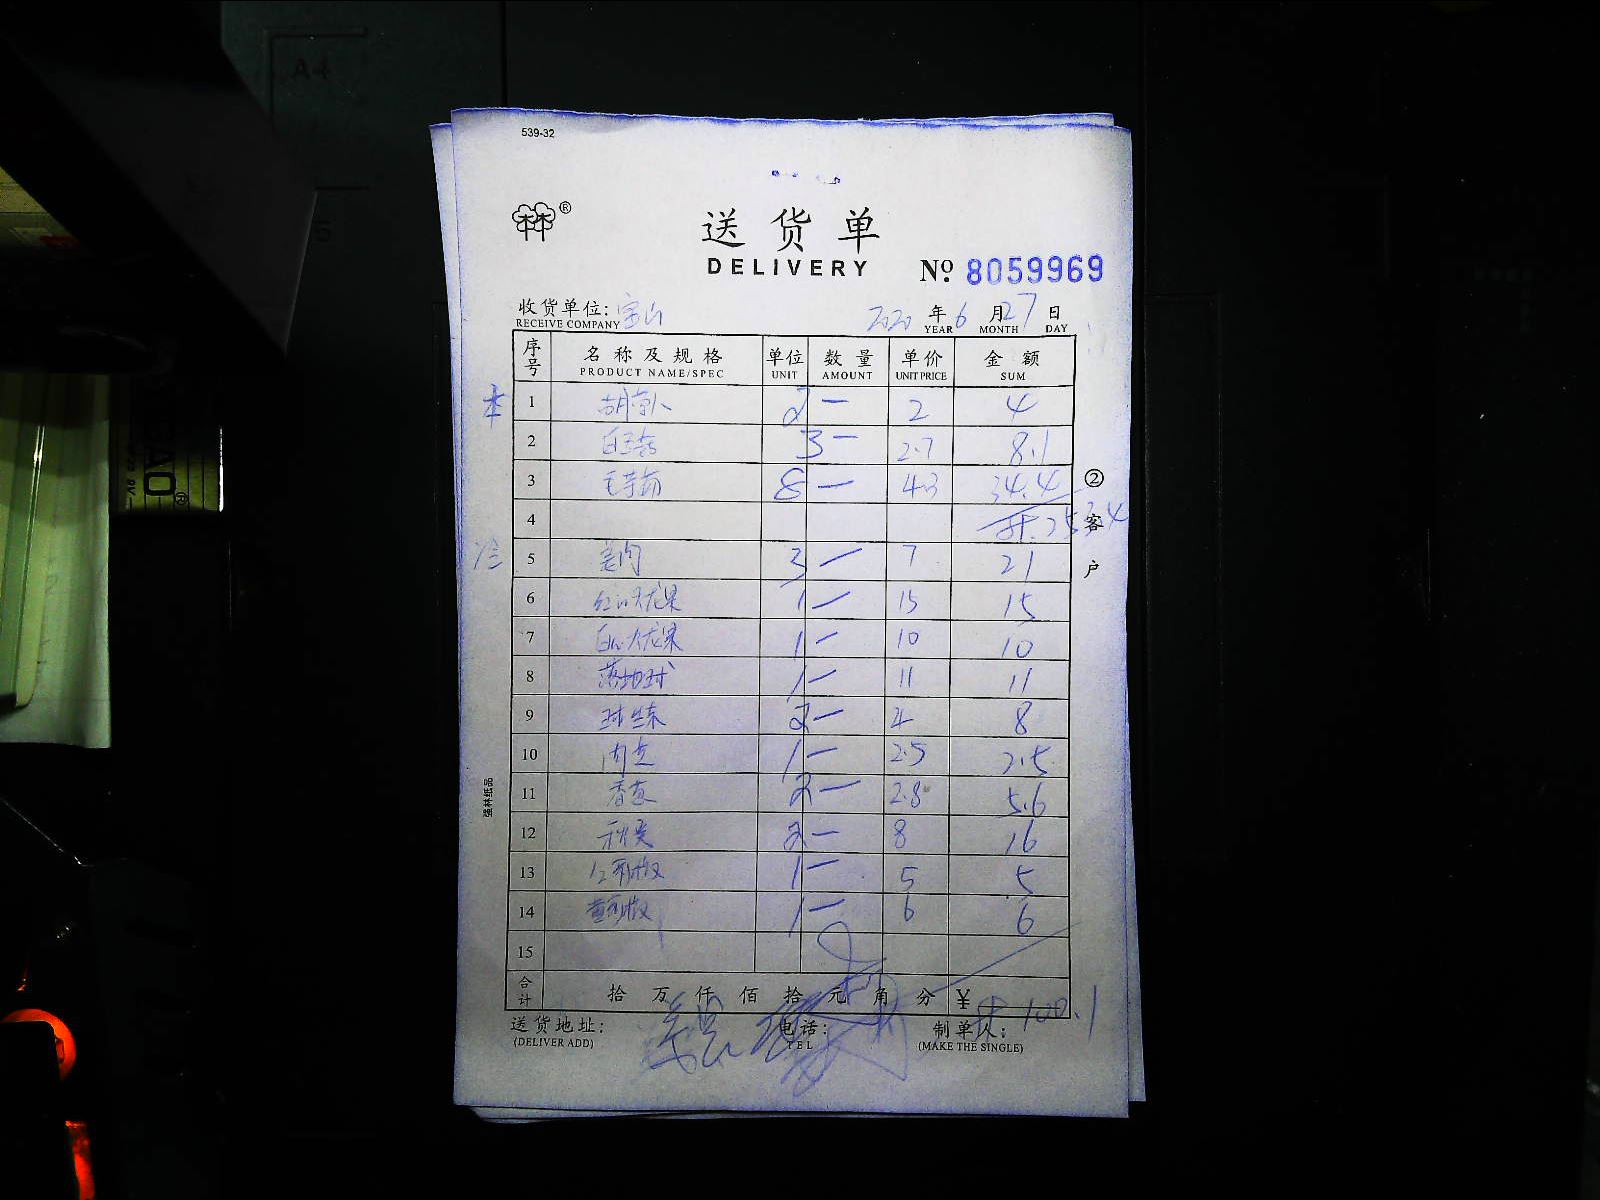 A4
539-32
林林®
送货单
DELIVERY
№ 8059969
收货单位: 宝山 2020 年 6 月 27 日
RECEIVE COMPANY YEAR MONTH DAY
序号 名称及规格 单位 数量 单价 金额
PRODUCT NAME/SPEC UNIT AMOUNT UNIT PRICE SUM
本 1 胡萝卜 2 — 2 4
2 白玉菇 3 — 2.7 8.1
3 毛芋艿 8 — 4.3 34.4
4
5 3 — 7 21
6 红心火龙果 1 — 15 15
7 白心火龙果 1 — 10 10
8 1 — 11 11
9 2 — 4 8
10 1 — 2.5 2.5
11 香葱 2 — 2.8 5.6
12 秋葵 2 — 8 16
13 红彩椒 1 — 5 5
14 黄彩椒 1 — 6 6
15
合计 拾 万 仟 佰 拾 元 角 分 ¥ 共 100.1
送货地址: 电话: 制单人:
(DELIVER ADD) TEL (MAKE THE SINGLE)
② 客户
强林纸品